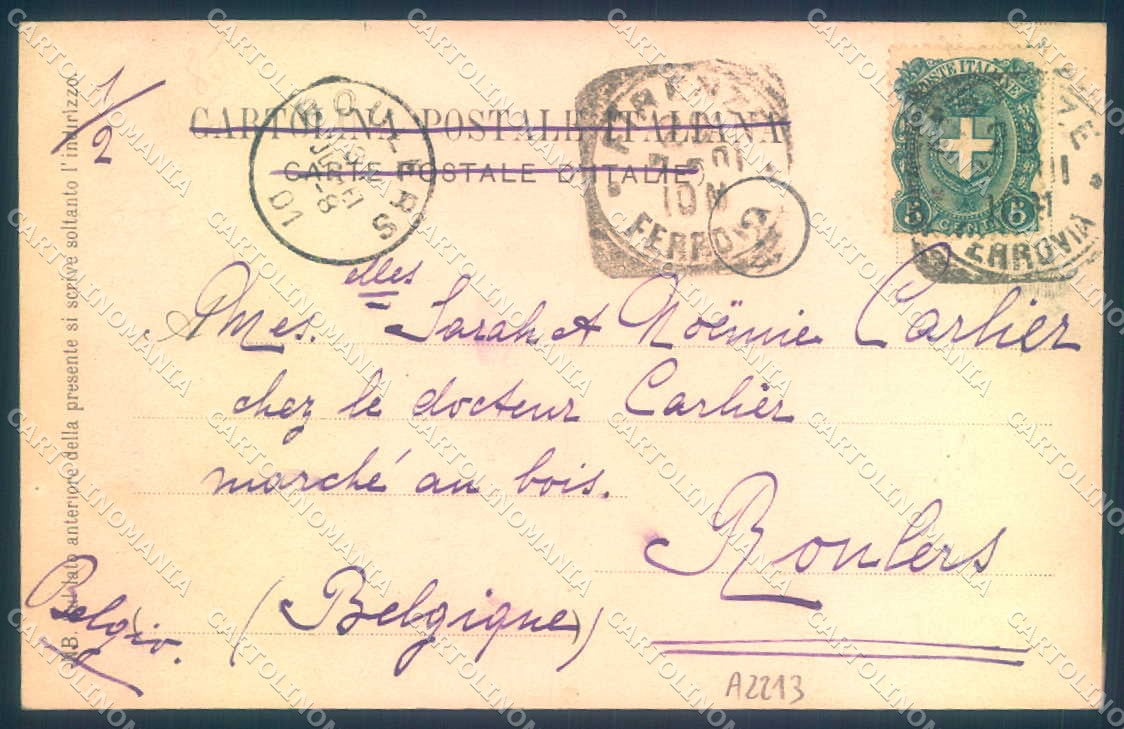 1/2
CARTOLINA POSTALE ITALIANA
CARTE POSTALE D'ITALIE
ROULERS
8
01
FIRENZE
10 M
FERROVIA
2
POSTE ITALIANE
5 CENT. 5
FERROVIA
Mes.elles Sarah et Noëmie Carlier
chez le docteur Carlier
marché au bois.
Roulers
(Belgique)
Belgio.
NB. Sul lato anteriore della presente si scrive soltanto l'indirizzo.
A2213
CARTOLINOMANIA